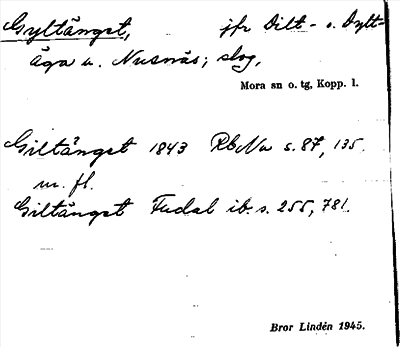 Gyltängst, jfr Dilt- o. Dylt-
äga u. Nusnäs; skog.
Mora sn o. tg, Kopp. l.
Giltängst 1843 RbNu s. 87, 135.
m. fl.
Giltängst Fudal ib. s. 255, 781.
Bror Lindén 1945.